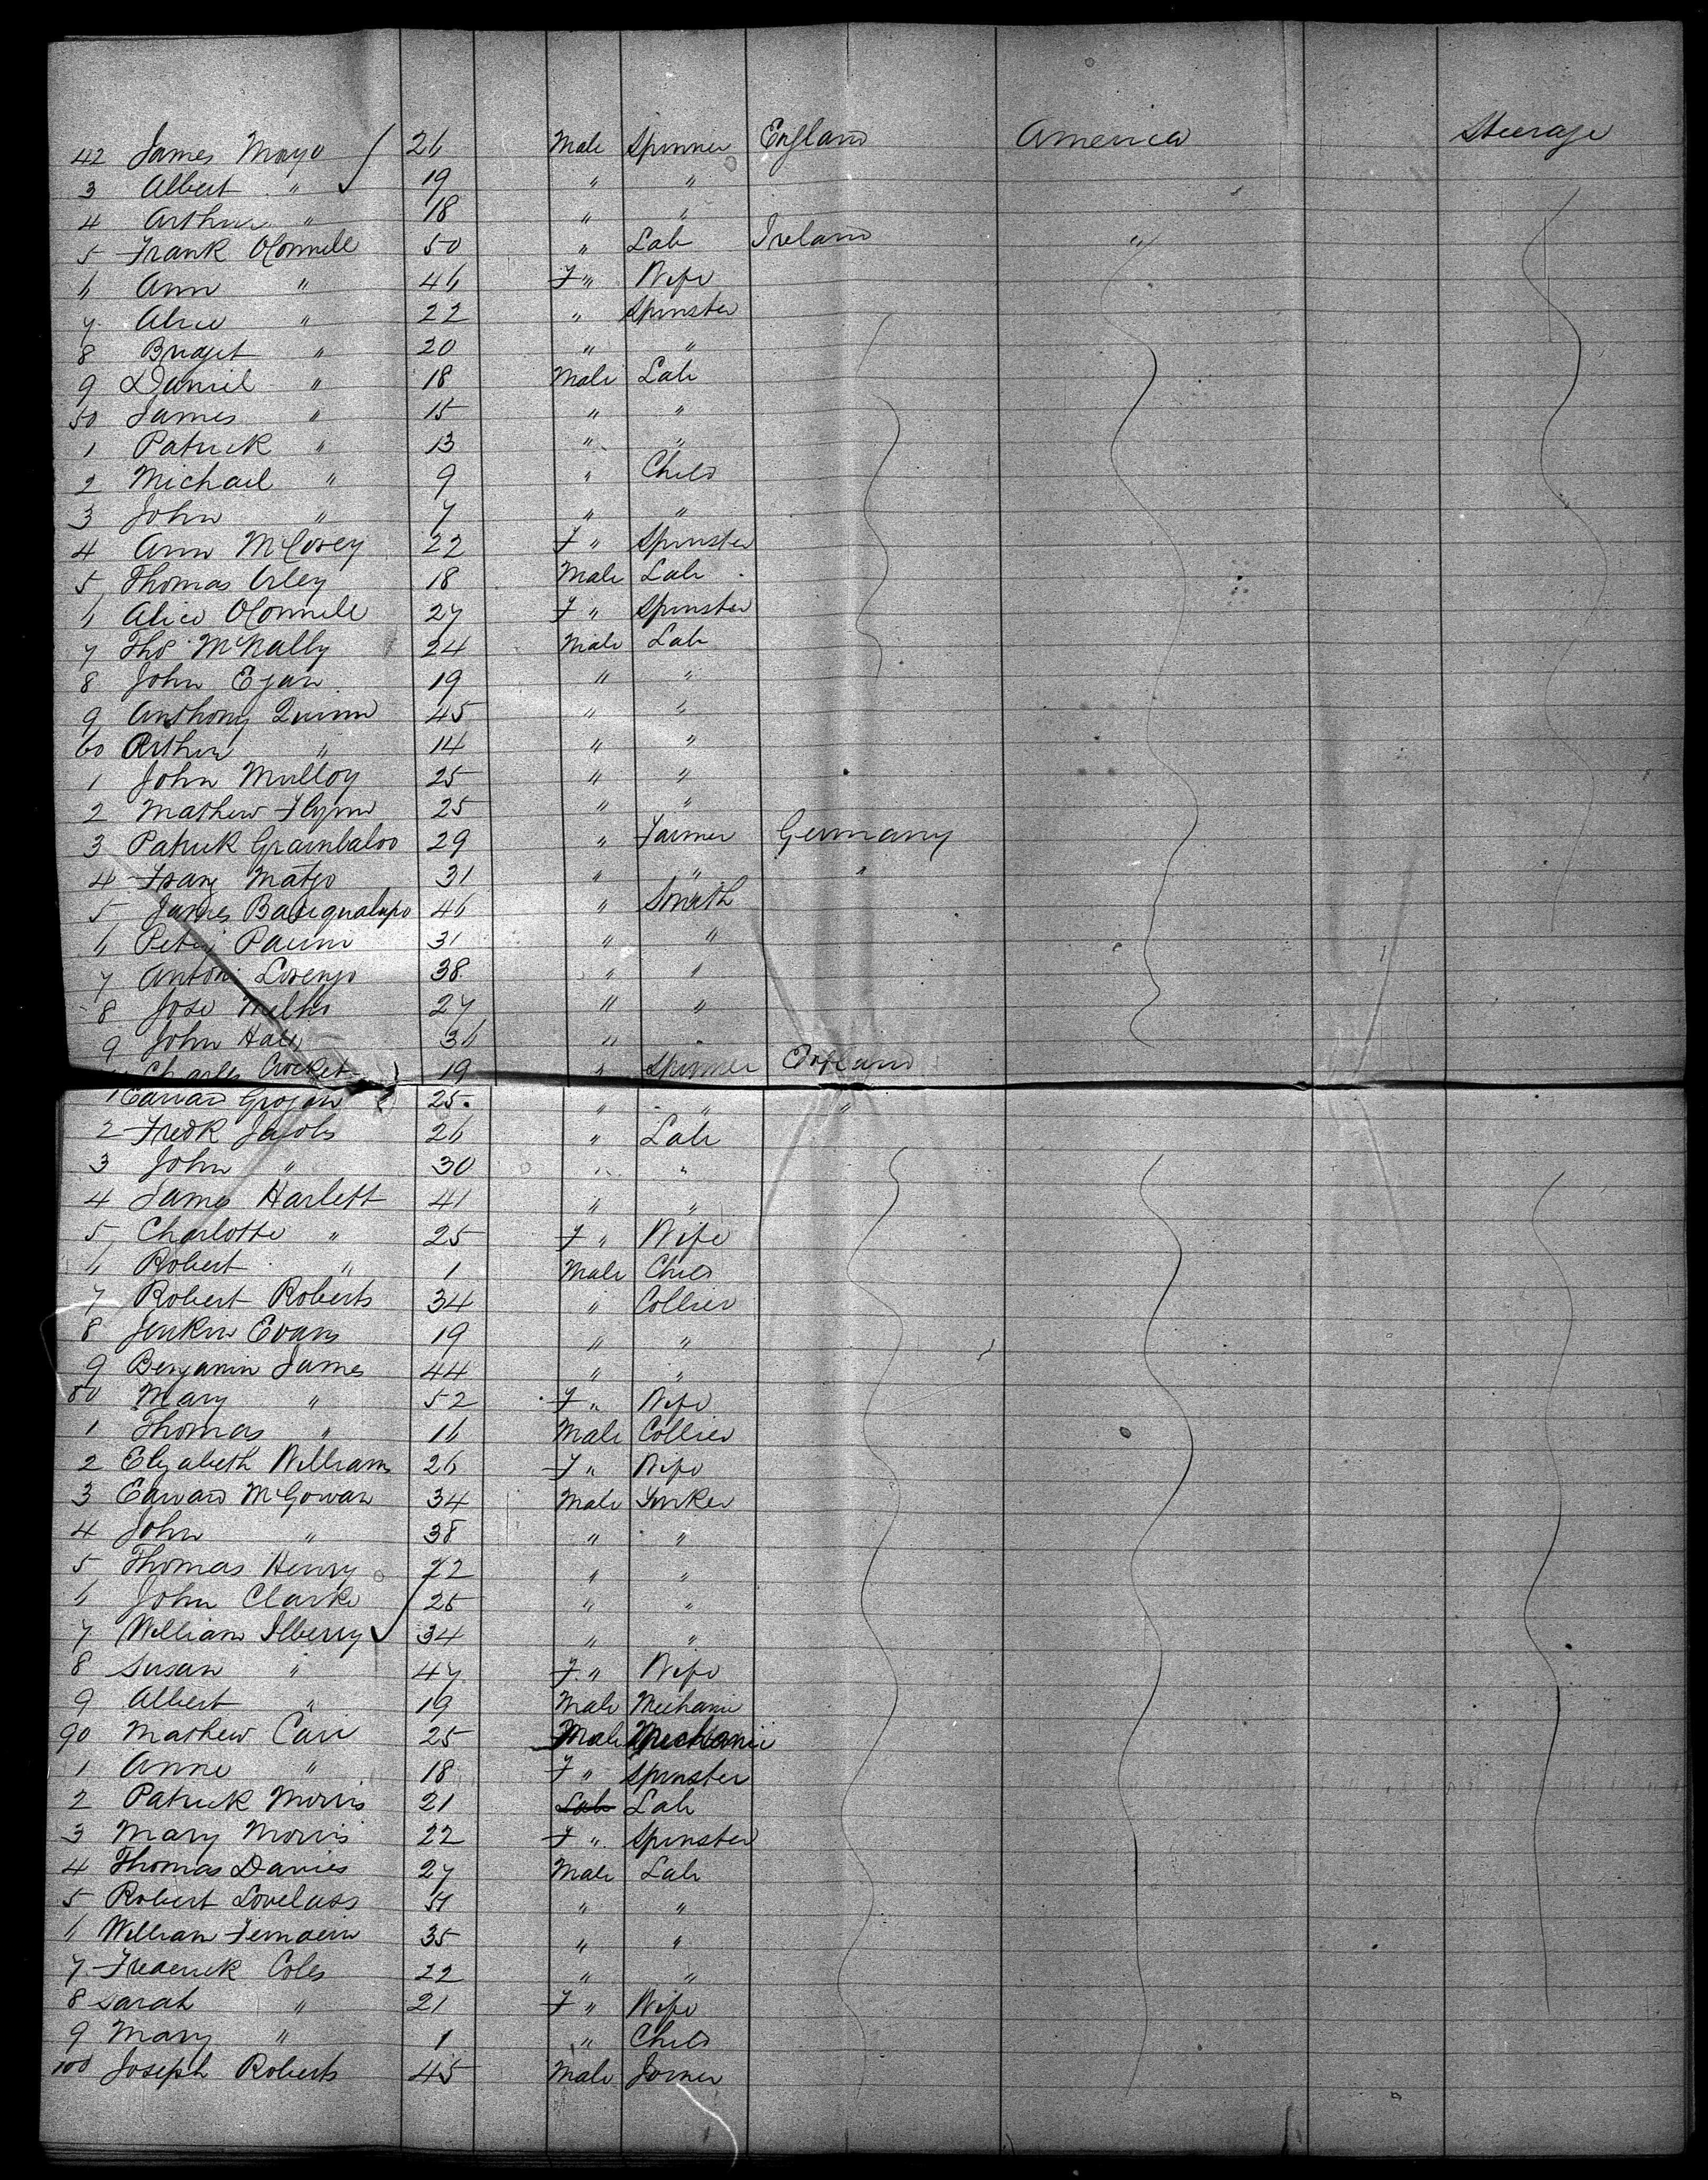 42 James Mayo 26 Male Spinner England America Steerage
3 Albert " 19 " "
4 Arthur " 18 " "
5 Frank OConnell 50 " Lab Ireland "
6 Ann " 46 F " Wife
7 Alice " 22 " Spinster
8 Bridget " 20 " "
9 Daniel " 18 Male Lab
50 James " 15 " "
1 Patrick " 13 " "
2 Michael " 9 " Child
3 John " 7 " "
4 Ann McCovey 22 F " Spinster
5 Thomas 18 Male Lab
6 Alice OConnell 27 F " Spinster
7 Thos McNally 24 Male Lab
8 John Egan 19 " "
9 Anthony Quinn 45 " "
60 Arthur " 14 " "
1 John Mulloy 25 " "
2 Mathew Flynn 25 " "
3 Patrick 29 " Farmer Germany
4 Franz 31 " " "
5 James 46 " Smith
6 31 " "
7 Anton Lorenzo 38 " "
8 Jose 27 " "
9 John 36 " "
Charles Crocket 19 " Spinner England
1 Edward Grogan 25 " " "
2 Fredk Jacobs 26 " Lab
3 John " 30 " "
4 James Harlett 41 " "
5 Charlotte " 25 F " Wife
6 Robert " 1 Male Child
7 Robert Roberts 34 " Collier
8 Jenkin Evans 19 " "
9 Benjamin James 44 " "
80 Mary " 52 F " Wife
1 Thomas " 16 Male Collier
2 Elizabeth Williams 26 F " Wife
3 Edward McGowan 34 Male Tinker
4 John " 38 " "
5 Thomas Henry 22 " "
6 John Clarke 25 " "
7 William Ilberry 34 " "
8 Susan " 47 F " Wife
9 Albert " 19 Male Mechanic
90 Mathew Carr 25 Male Mechanic
1 Anne " 18 F " Spinster
2 Patrick Morris 21 Lab Lab
3 Mary Morris 22 F " Spinster
4 Thomas Davies 27 Male Lab
5 Robert Lovelass " "
6 William 35 " "
7 Frederick Coles 22 " "
8 Sarah " 21 F " Wife
9 Mary " 1 " Child
100 Joseph Roberts 45 Male Joiner